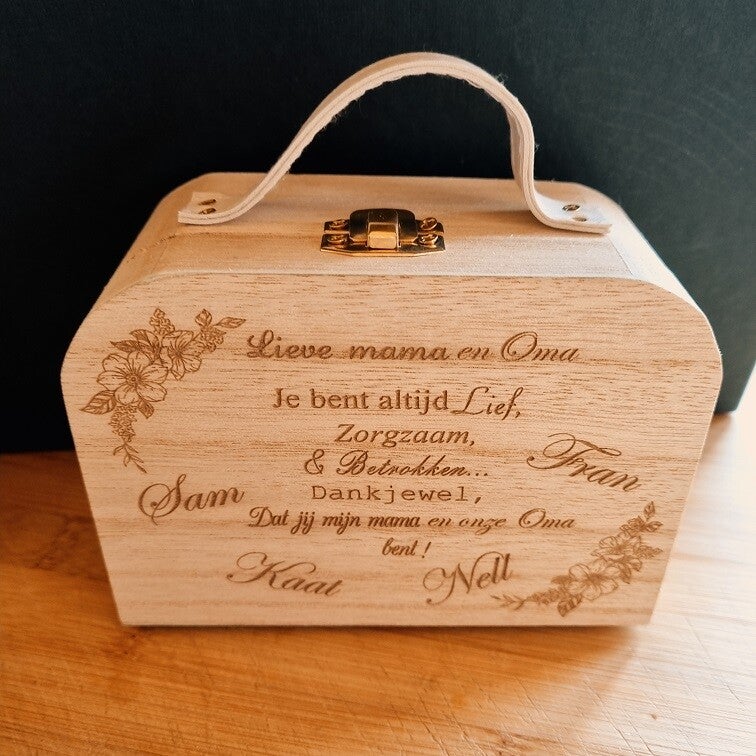 Lieve mama en Oma
Je bent altijd Lief,
Zorgzaam,
& Betrokken...
Dankjewel,
Dat jij mijn mama en onze Oma
bent!
Sam
Fran
Kaat
Nell